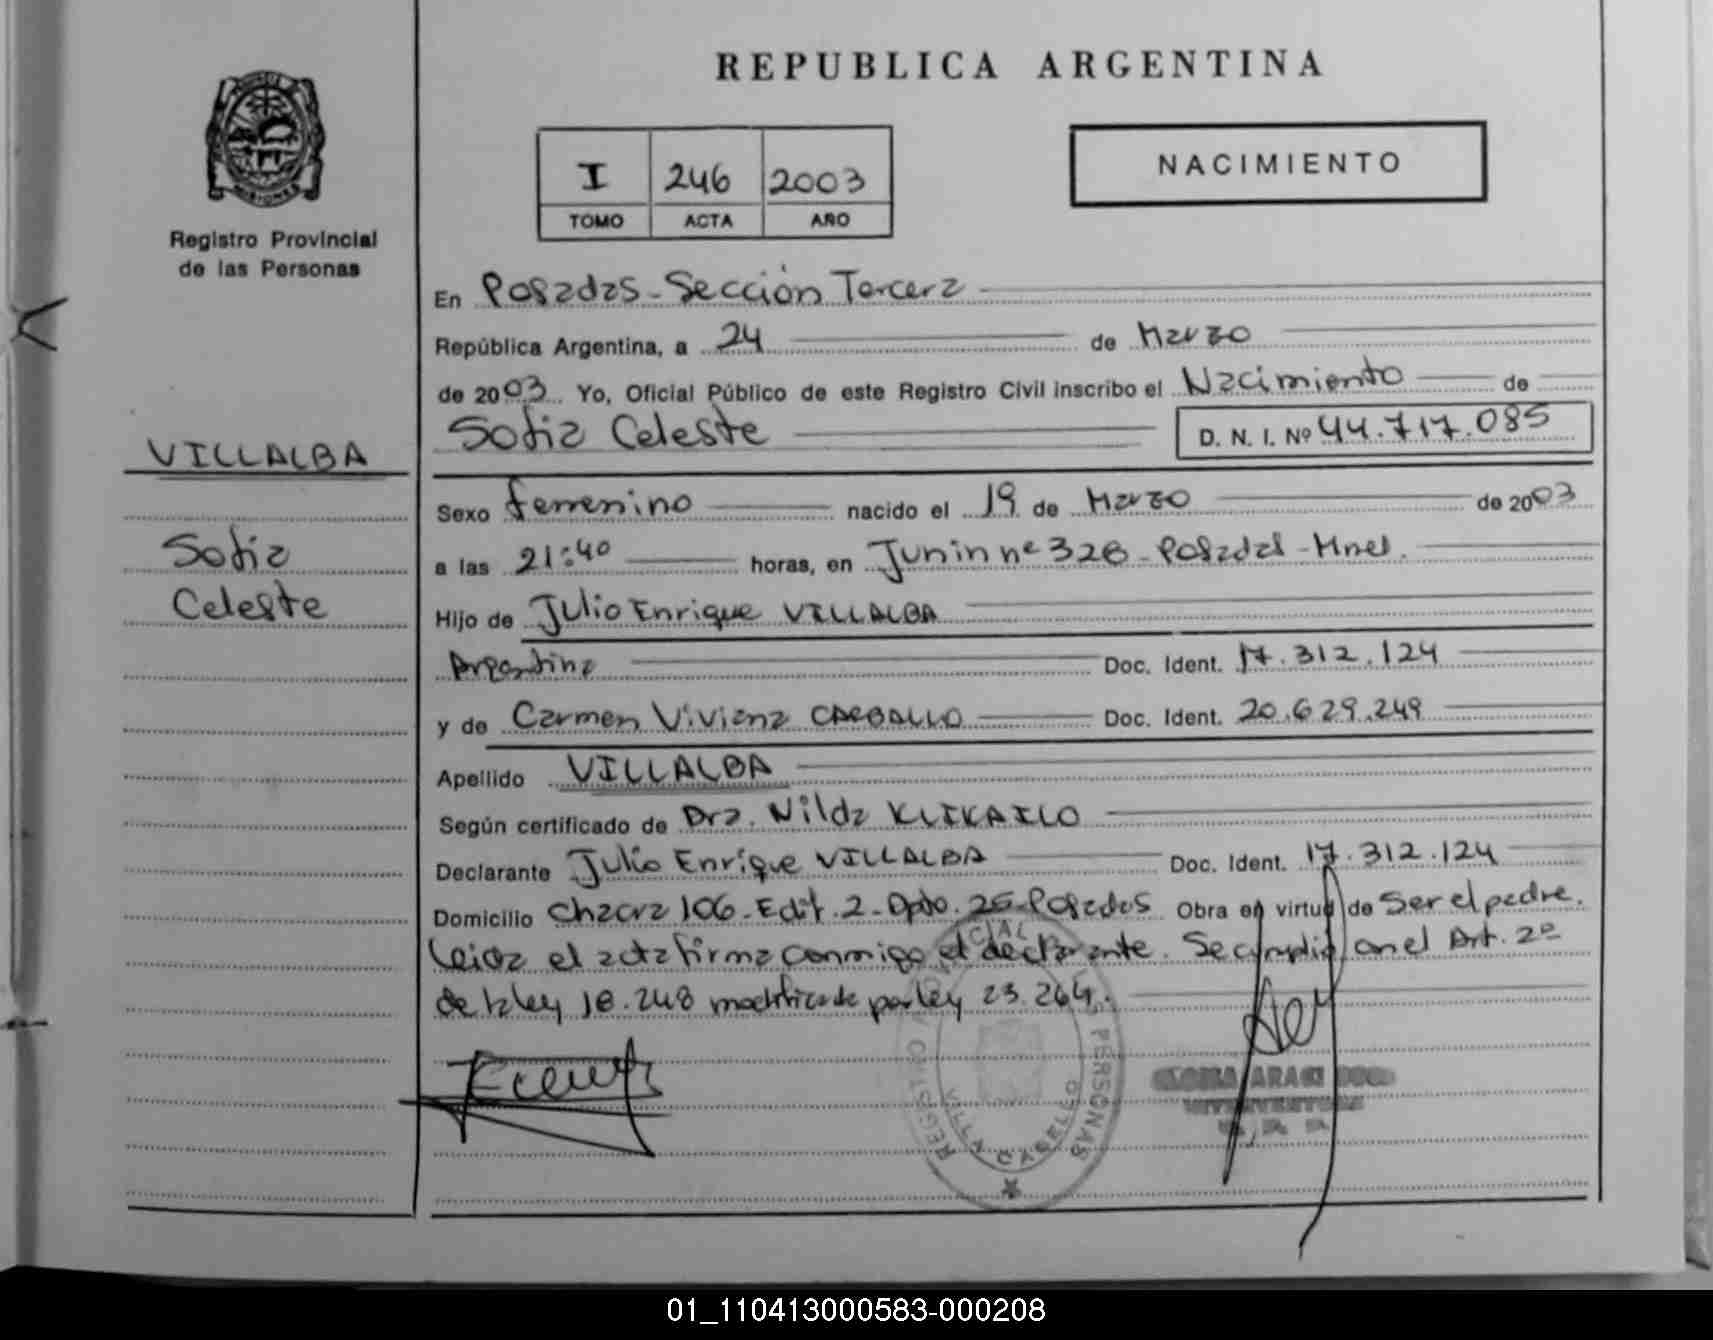 REPUBLICA ARGENTINA
MISIONES
Registro Provincial
de las Personas
I 246 2003
TOMO ACTA AÑO
NACIMIENTO
En Posadas - Sección Tercera
República Argentina, a 24 de Marzo
de 2003 Yo, Oficial Público de este Registro Civil inscribo el Nacimiento de
Sofia Celeste D. N. I. Nº 44.717.085
VILLALBA
Sofia
Celeste
Sexo femenino nacido el 19 de Marzo de 2003
a las 21:40 horas, en Junin nº 328 - Posadas - Mnes.
Hijo de Julio Enrique VILLALBA
Argentina Doc. Ident. 17.312.124
y de Carmen Viviana CARBALLO Doc. Ident. 20.629.249
Apellido VILLALBA
Según certificado de Dra. Nilda KLIKAILO
Declarante Julio Enrique VILLALBA Doc. Ident. 17.312.124
Domicilio Chacra 106 - Edif. 2 - Dpto. 25 - Posadas Obra en virtud de Ser el padre.
Leida el acta firma conmigo el declarante. Se cumplio con el Art. 2º
de la ley 18.248 modificada por ley 23.264.
REGISTRO PROVINCIAL LAS PERSONAS
VILLA CABELLO
ARACI
01_110413000583-000208